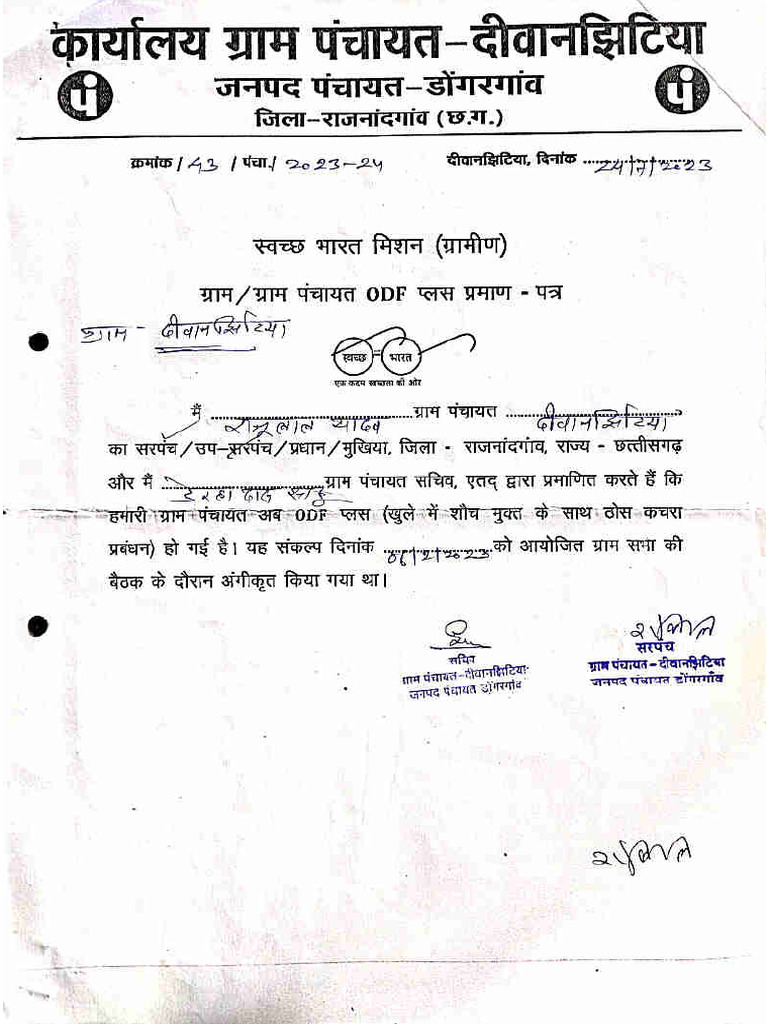 कार्यालय ग्राम पंचायत-दीवानझिटिया
जनपद पंचायत-डोंगरगांव
जिला-राजनांदगांव (छ.ग.)
पं
पं
क्रमांक/43/पंचा./2023-24 दीवानझिटिया, दिनांक
स्वच्छ भारत मिशन (ग्रामीण)
ग्राम/ग्राम पंचायत ODF प्लस प्रमाण - पत्र
ग्राम - दीवानझिटिया
स्वच्छ भारत
एक कदम स्वच्छता की ओर
मैं रामूलाल यादव ग्राम पंचायत दीवानझिटिया
का सरपंच/उप-सरपंच/प्रधान/मुखिया, जिला - राजनांदगांव, राज्य - छत्तीसगढ़
और मैं ग्राम पंचायत सचिव, एतद् द्वारा प्रमाणित करते हैं कि
हमारी ग्राम पंचायत अब ODF प्लस (खुले में शौच मुक्त के साथ ठोस कचरा
प्रबंधन) हो गई है। यह संकल्प दिनांक को आयोजित ग्राम सभा की
बैठक के दौरान अंगीकृत किया गया था।
सचिव
ग्राम पंचायत-दीवानझिटिया
जनपद पंचायत डोंगरगाँव
सरपंच
ग्राम पंचायत-दीवानझिटिया
जनपद पंचायत डोंगरगाँव